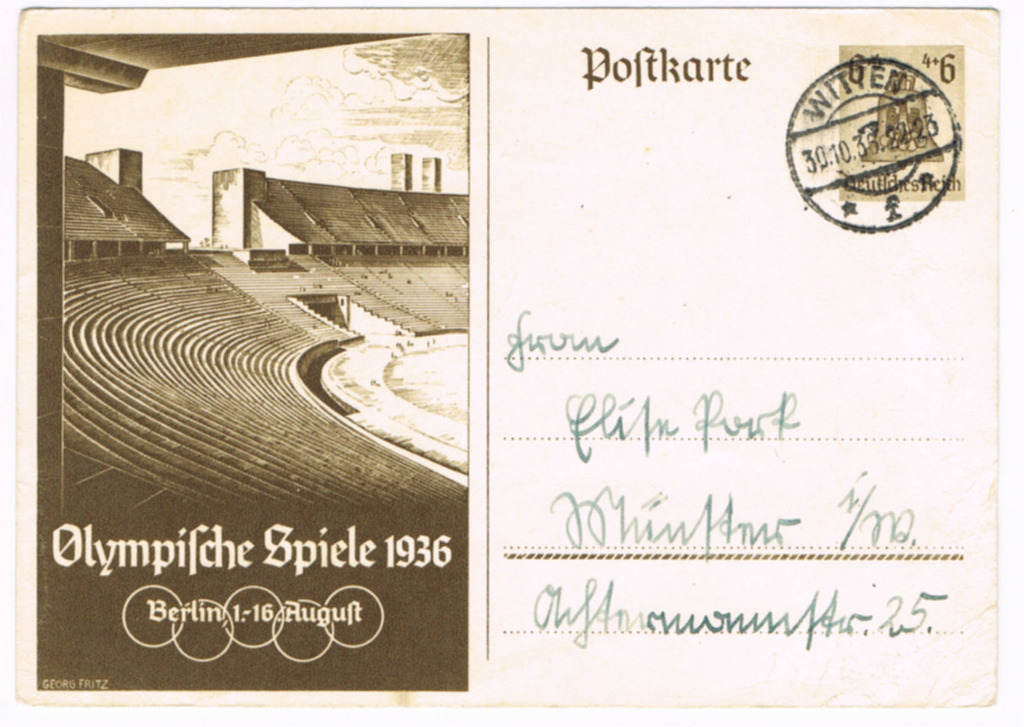 Postkarte
4+6
WITTEN
30.10.36.22-23
Deutsches Reich
Frau
Elise Pork
Münster i/W.
Achtermannstr. 25.
Olympische Spiele 1936
Berlin, 1.-16. August
GEORG FRITZ